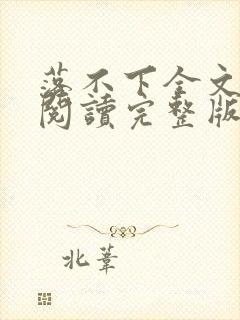 落不下全文
閱讀完整版
北葦